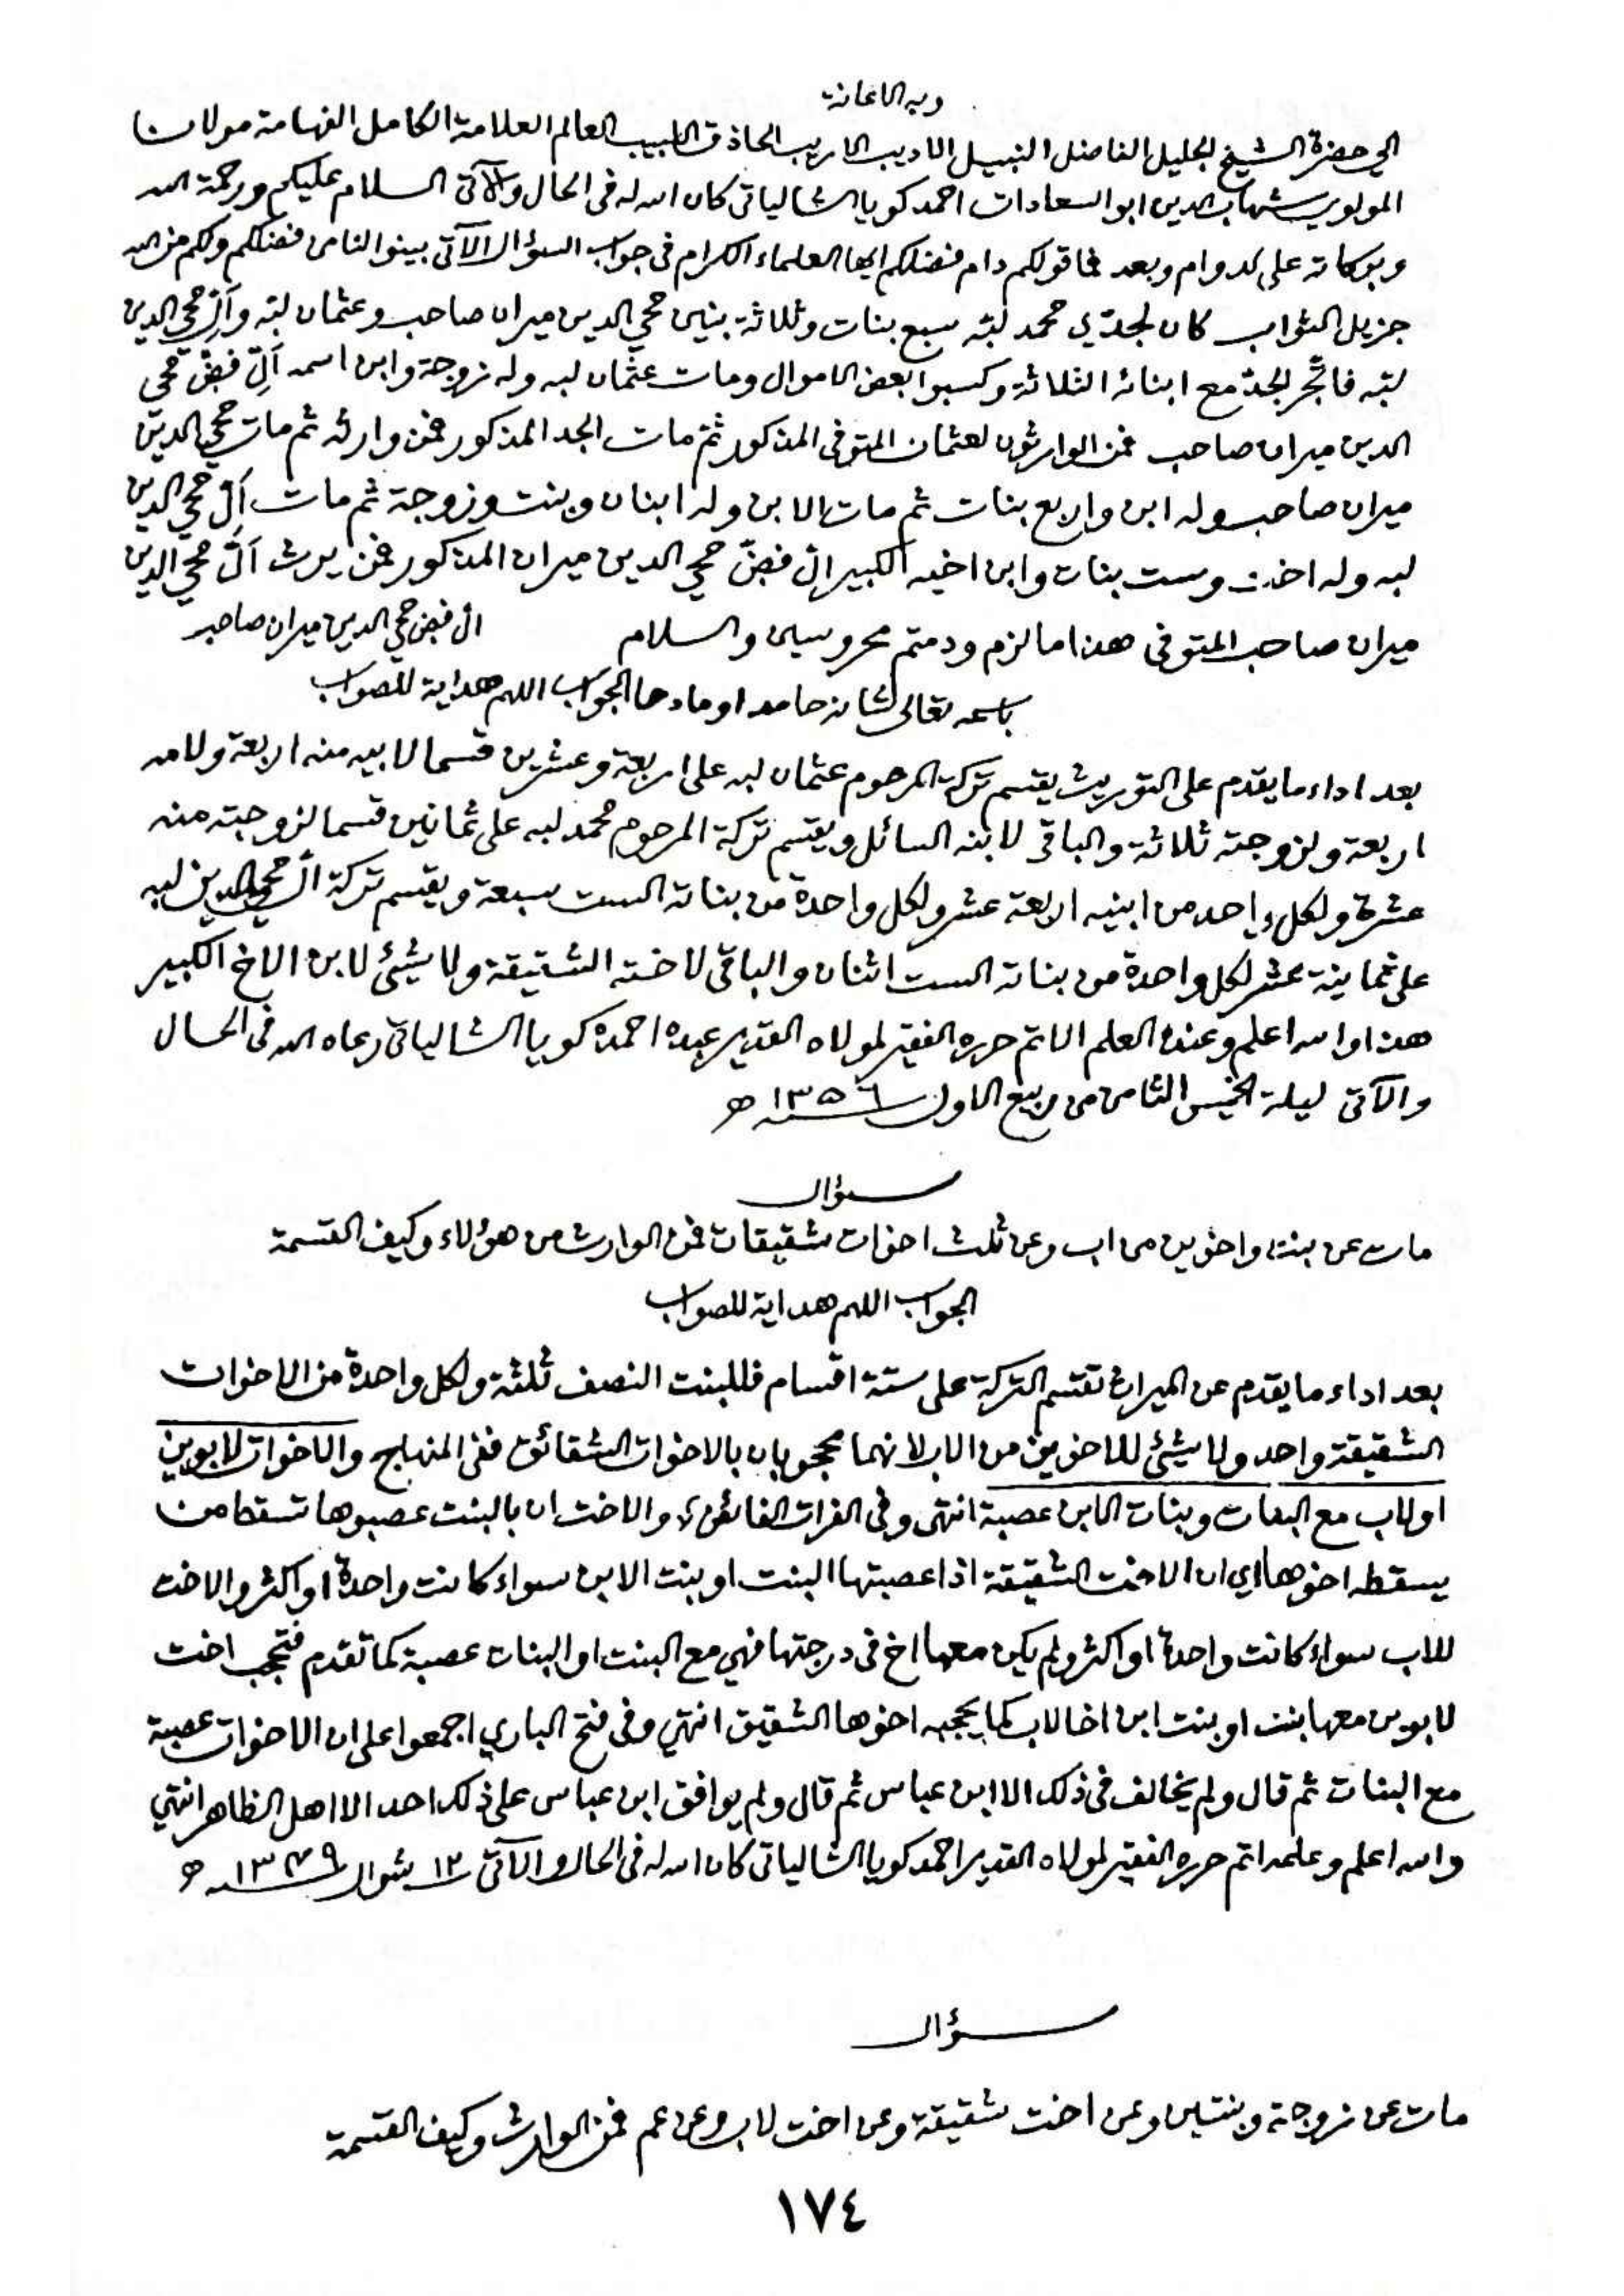 وبه الاعانة
الى حضرة الشيخ الجليل الفاضل النبيل الاديب الاريب الحاذق اللبيب العالم العلامة الكامل الفهامة مولانا
المولوي شهاب الدين ابو السعادات احمد كويا الشالياتى كان الله له فى الحال والآتى السلام عليكم ورحمة الله
وبركاته على الدوام وبعد فما قولكم دام فضلكم ايها العلماء الكرام فى جواب السؤال الآتى بينوا لنا من فضلكم ولكم من الله
جزيل الثواب كان لجدّي محمد لبّه سبع بنات وثلاثة بنين محي الدين ميران صاحب وعثمان لبّه وآلِّ محي الدين
لبّه فاتّجر الجدّ مع ابنائه الثلاثة وكسبوا بعض الاموال ومات عثمان لبه وله زوجة وابن اسمه آلِّ فبض محي
الدين ميران صاحب فمن الوارثون لعثمان المتوفى المذكور ثمّ مات الجد المذكور فمن وارثه ثم مات محي الدين
ميران صاحب وله ابن واربع بنات ثم مات الابن وله ابنان وبنت وزوجة ثم مات آلِّ محي الدين
لبه وله اخت وست بنات وابن اخيه الكبير الِّ فبضّ محي الدين ميران المذكور فمن يرث آلِّ محي الدين
ميران صاحب المتوفى هذا ما لزم ودمتم محروسين والسلام الِّ فبض محي الدين ميران صاحب
باسمه تعالى شانه حامدا ومادحا الجواب اللهم هداية للصواب
بعد اداء ما يقدم على التوريث يقتسم تركة المرحوم عثمان لبه على اربعة وعشرين قسما لابيه منه اربعة ولامه
اربعة ولزوجته ثلاثة والباقى لابنه السائل ويقتسم تركة المرحوم محمد لبه على ثمانين قسما لزوجته منه
عشرة ولكل واحد من ابنيه اربعة عشر ولكل واحدة من بناته الست سبعة ويقسم تركة الّ محي الدين لبه
على ثمانية عشر لكل واحدة من بناته الست اثنان والباقى لاخته الشقيقة ولا شيئ لابن الاخ الكبير
هذا والله اعلم وعنده العلم الاتم حرره الفقير لمولاه القدير عبده احمد كويا الشالياتى رعاه الله فى الحال
والآتى ليلة الخميس الثامن من ربيع الاول سنة ١٣٥٦ ھ
سؤال
مات عن بنت واخوين من اب وعن ثلث اخوات شقيقات فمن الوارث من هؤلاء وكيف القسمة
الجواب اللهم هداية للصواب
بعد اداء ما يقدم عن الميراث تقتسم التركة على ستة اقسام فللبنت النصف ثلثة ولكل واحدة من الاخوات
الشقيقة واحد ولا شيئ للاخوين من الاب لانهما محجوبان بالاخوات الشقائق ففى المنهاج والاخوات لابوين
او لاب مع البنات وبنات الابن عصبة انتهى وفى الفرات الفائض والاخت ان بالبنت عصبوها تسقط من
يسقطه اخوها اي ان الاخت الشقيقة اذا عصبتها البنت او بنت الابن سواء كانت واحدة او اكثر والاخت
للاب سواء كانت واحدة او اكثر ولم يكن معها اخ فى درجتها فهي مع البنت او البنات عصبة كما تقدم فتحجب اخت
لابوين معها بنت او بنت ابن اخا لاب كما يحجبه اخوها الشقيق انتهى وفى فتح الباري اجمعوا على ان الاخوات عصبة
مع البنات ثم قال ولم يخالف فى ذلك الا ابن عباس ثم قال ولم يوافق ابن عباس على ذلك احد الا اهل الظاهر انتهى
والله اعلم وعلمه اتم حرره الفقير لمولاه القدير احمد كويا الشالياتى كان الله له فى الحال والآتى ١٢ شوال سنة ١٣٤٩ ھ
سؤال
مات عن زوجة وبنتين وعن اخت شقيقة وعن اخت لاب وعن عم فمن الوارث وكيف القسمة
١٧٤